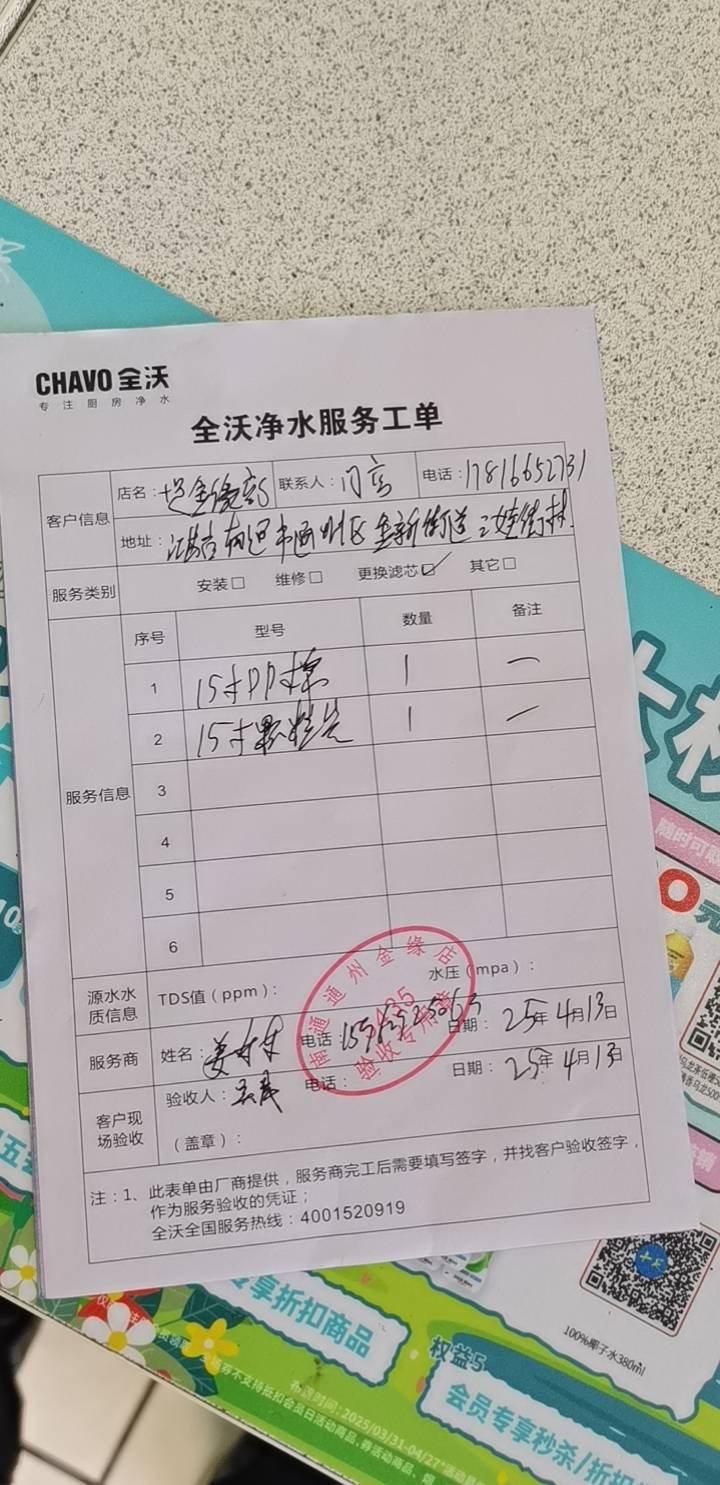 CHAVO 全沃
专注厨房净水
全沃净水服务工单
客户信息
店名：
联系人：门店
电话：17816652731
地址：江苏省南通市通州区金新街道
服务类别
安装□ 维修□ 更换滤芯☑ 其它□
服务信息
序号 型号 数量 备注
1 15寸PP棉 1 —
2 15寸颗粒炭 1 —
3
4
5
6
源水水质信息
TDS值（ppm）：
水压（mpa）：
服务商
姓名：姜
电话：
日期：25年4月13日
客户现场验收
验收人：
电话：
日期：25年4月13日
（盖章）：
南通通州金缘店
验收专用章
注：1、此表单由厂商提供，服务商完工后需要填写签字，并找客户验收签字，
作为服务验收的凭证；
全沃全国服务热线：4001520919
随时可
100%椰子水380ml
专享折扣商品
权益5
会员专享秒杀/折扣
布送时间：2025/03/31-04/27